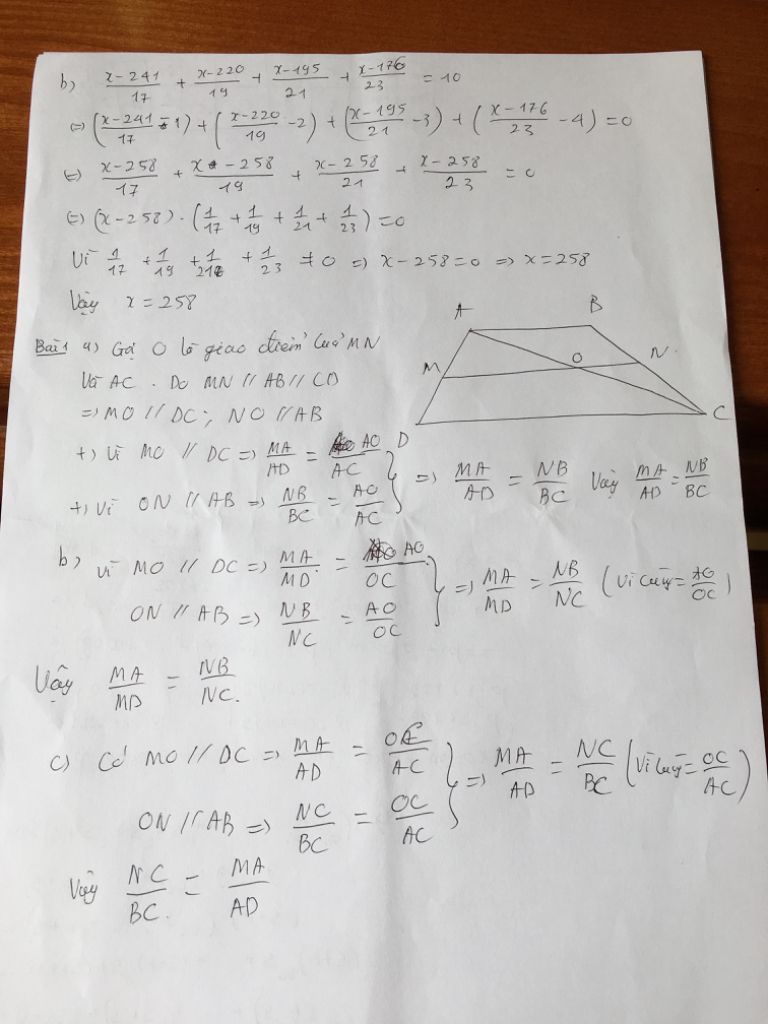 b) \frac{x-241}{17} + \frac{x-220}{19} + \frac{x-195}{21} + \frac{x-176}{23} = 10
(=) (\frac{x-241}{17} - 1) + (\frac{x-220}{19} - 2) + (\frac{x-195}{21} - 3) + (\frac{x-176}{23} - 4) = 0
(=) \frac{x-258}{17} + \frac{x-258}{19} + \frac{x-258}{21} + \frac{x-258}{23} = 0
(=) (x-258) . (\frac{1}{17} + \frac{1}{19} + \frac{1}{21} + \frac{1}{23}) = 0
Vì \frac{1}{17} + \frac{1}{19} + \frac{1}{21} + \frac{1}{23} ≠ 0 => x-258=0 => x=258
Vậy x = 258
A B
Bài 1 a) Gọi O là giao điểm của MN
M O N
Và AC . Do MN // AB // CD
=> MO // DC ; NO // AB
D C
+) Vì MO // DC => \frac{MA}{AD} = \frac{AO}{AC}
+) Vì ON // AB => \frac{NB}{BC} = \frac{AO}{AC} } => \frac{MA}{AD} = \frac{NB}{BC} Vậy \frac{MA}{AD} = \frac{NB}{BC}
b) Vì MO // DC => \frac{MA}{MD} = \frac{AO}{OC}
ON // AB => \frac{NB}{NC} = \frac{AO}{OC} } => \frac{MA}{MD} = \frac{NB}{NC} (Vì cùng = \frac{AO}{OC})
Vậy \frac{MA}{MD} = \frac{NB}{NC}.
c) Có MO // DC => \frac{MA}{AD} = \frac{OC}{AC}
ON // AB => \frac{NC}{BC} = \frac{OC}{AC} } => \frac{MA}{AD} = \frac{NC}{BC} (Vì cùng = \frac{OC}{AC})
Vậy \frac{NC}{BC.} = \frac{MA}{AD}